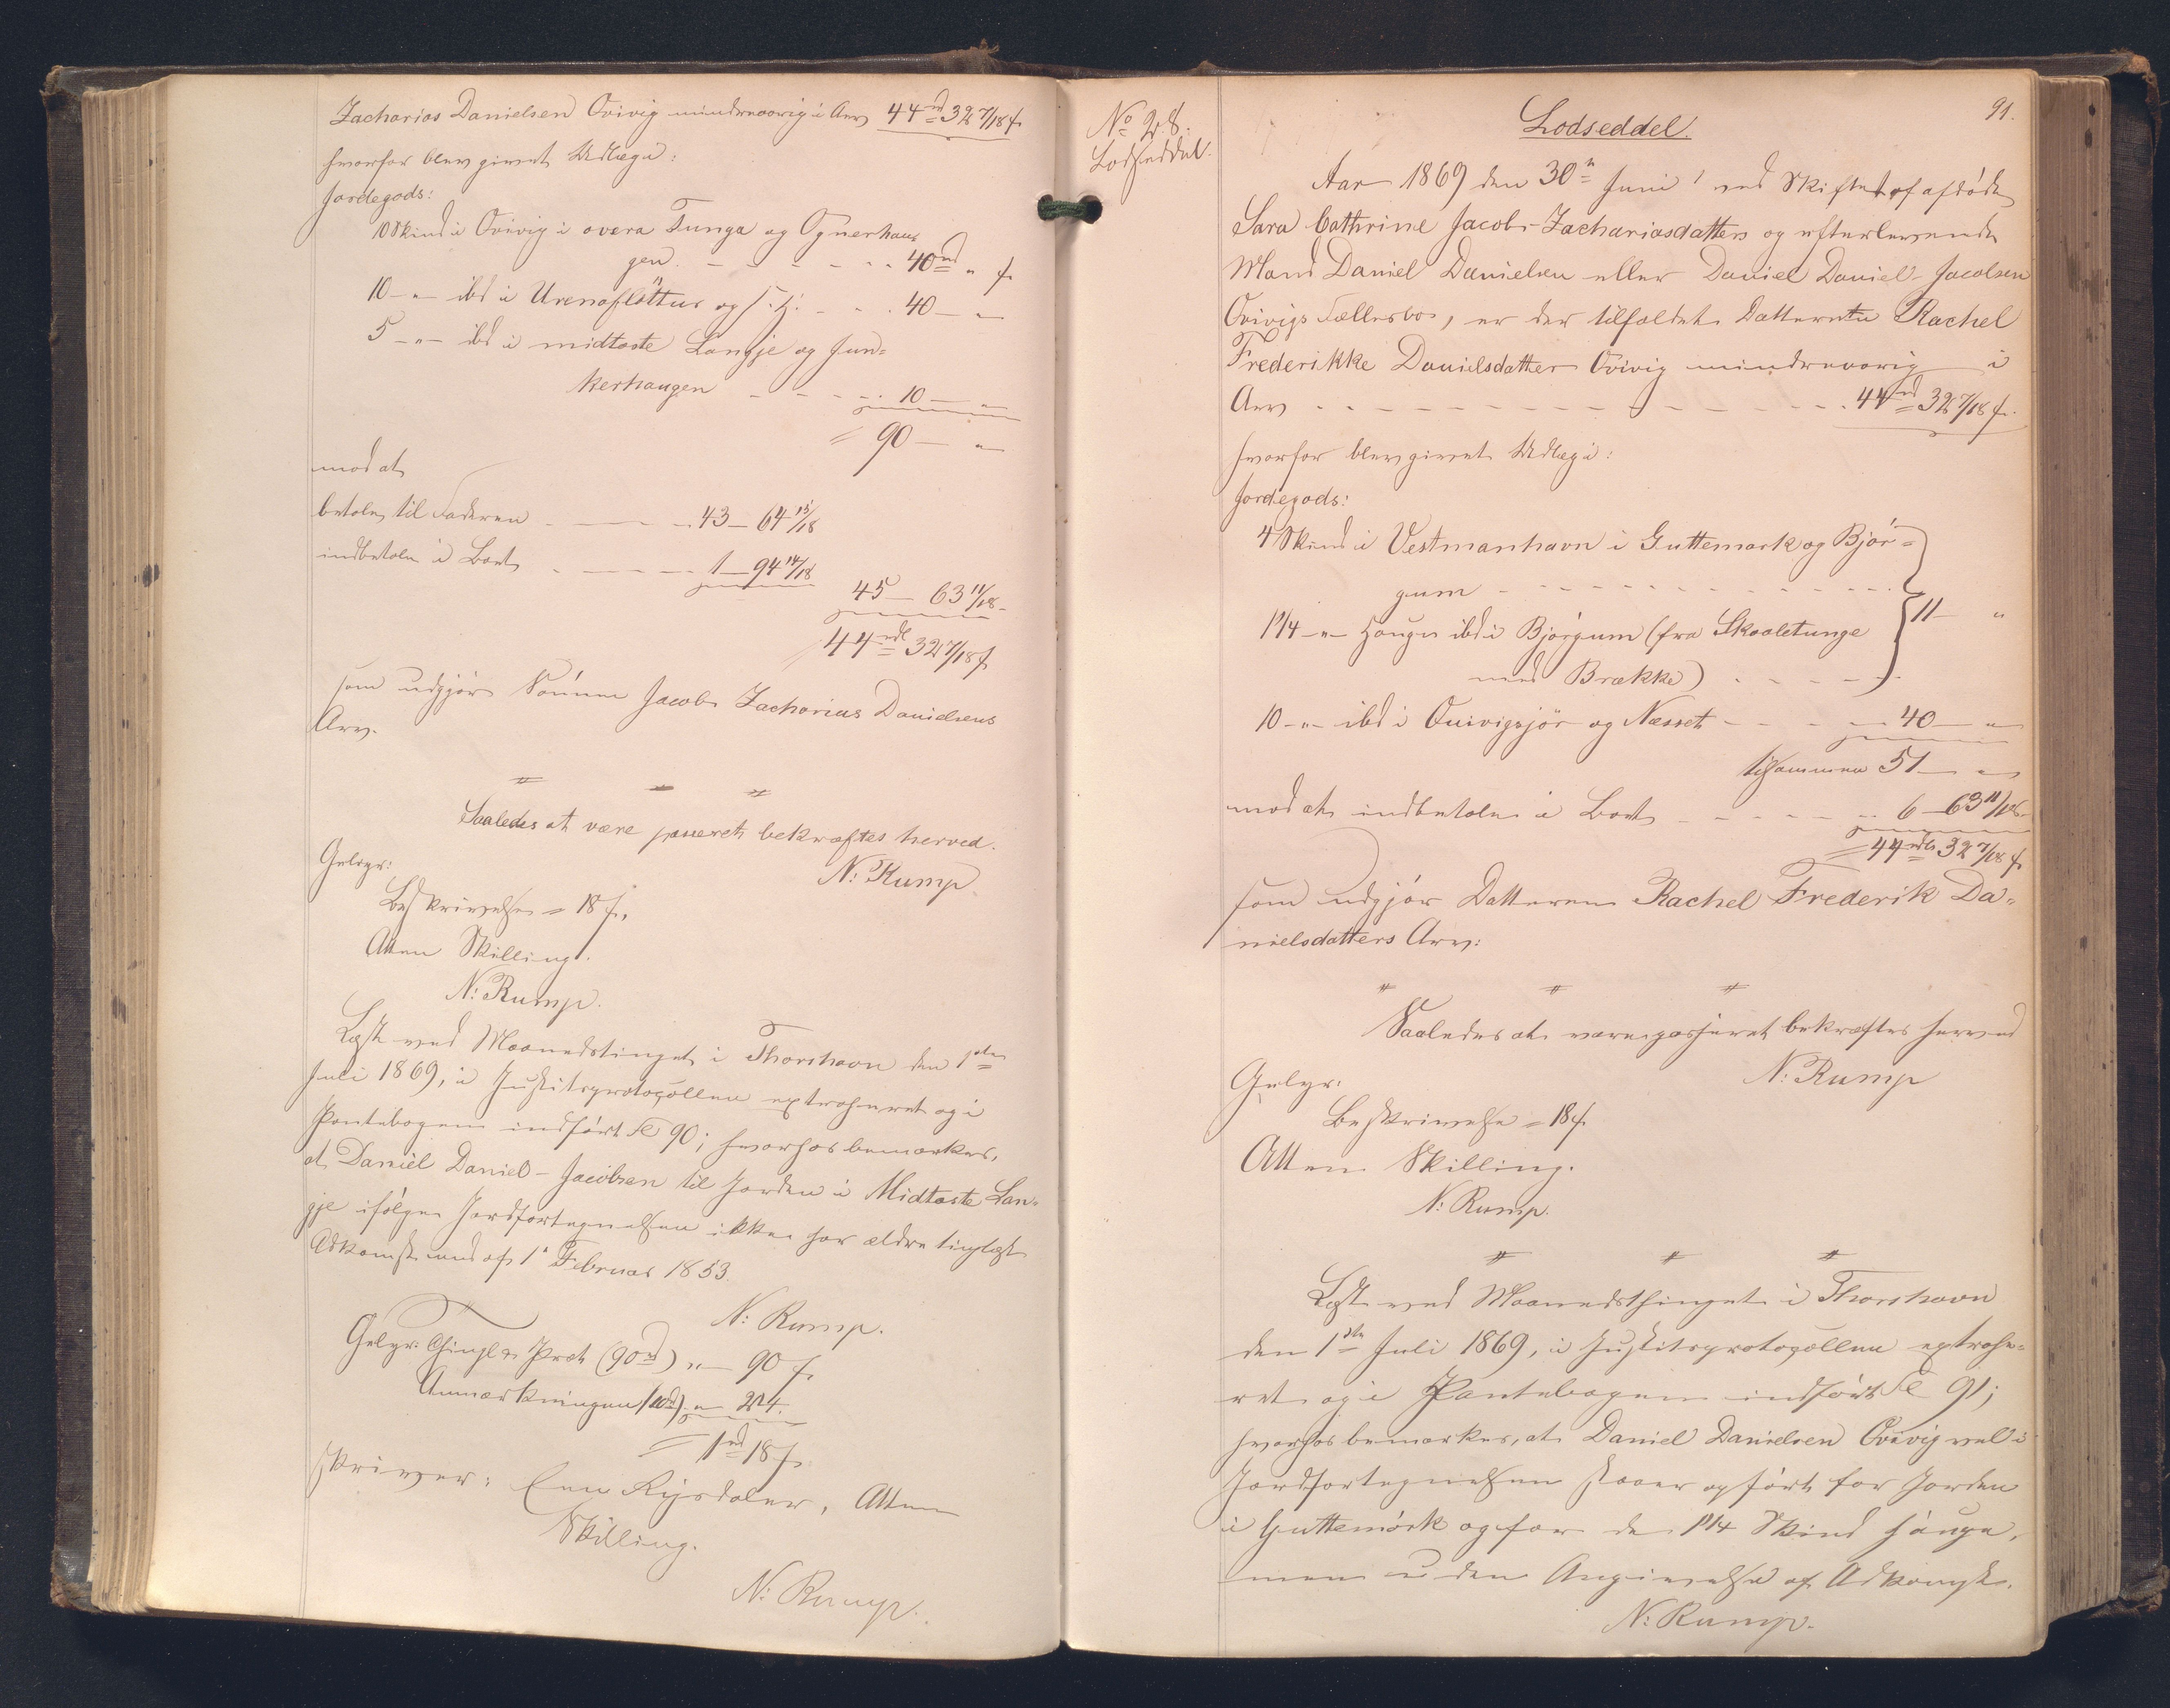 Zacharias Danielsen Qvivig mindreaarig i Arv 44rd 32 7/18 ſ.
hvorfor blev givet Udlæg i:
Jordegods:
10 Skind i Qvivig i overa Tunga og Ognerhaug
gen - - - - - 40rd " ſ
10 -"- ibd i Urenaflöttur og - - - 40 - "
5 -"- ibd i midtaste Langje og Jun=
kerhaugen - - - - 10 - "
= 90 - "
mod at
betale til Faderen - - - 43 - 64 15/18
indbetale i Boet - - - 1 - 94 14/18
45 - 63 11/18 -
44rdl 32 7/18 ſ
som udgjør Sønnen Jacob Zacharias Danielsens
Arv.
Saaledes at være passeret bekræftes herved.
N: Rump.
Gebyr:
Beskrivelse = 18 ſ.
Atten Skilling.
N: Rump.
Læst ved Maanedstinget i Thorshavn den 1ste
Juli 1869, i Justitsprotocollen extraheret og i
Pantebogen indført Fol 90; hvorhos bemærkes,
at Daniel Daniel-Jacobsen til Jorden i Midtaste Lan=
gje ifølge Jordfortegnelsen ikke har ældre tinglæst
Adkomst end af 1ste Februar 1853.
N: Rump.
Gebyr: Thingl & Prot (90rd) " - 90 ſ.
Anmærkningen (10rd) " - 24.
= 1rd 18 ſ.
skriver: Een Rigsdaler, Atten
Skilling.
N: Rump.
No 28.
Lodseddel.
91.
Lodseddel.
Aar 1869 den 30te Juni, ved Skiftet af afdøde
Sara Cathrine Jacob-Zachariasdatters og efterlevende
Mand Daniel Danielsen eller Daniel Daniel-Jacobsen
Qvivigs Fællesbo, er der tilfaldet Datteren Rachel
Frederikke Danielsdatter Qvivig mindreaarig i
Arv - - - - - - - - - - 44rd 32 7/18 ſ.
hvorfor blev givet Udlæg i:
Jordegods:
4 Skind i Vestmanhavn i Guttemark og Bjór=
gum - - - - - - -
1 1/4 -"- Hauge ibd i Bjórgum (fra Skaaletunge
med Brække) - - - - 11 - "
10 -"- ibd i Quivigsjör og Næsset - - - 40 - "
tilsammen 51 - "
mod at indbetale i Boet - - - - 6 - 63 11/18
= 44rdl 32 7/18 ſ
som udgjør Datteren Rachel Frederik Da=
nielsdatters Arv:
Saaledes at være passeret bekræftes herved
N: Rump
Gebyr:
Beskrivelse = 18 ſ.
Atten Skilling.
N: Rump.
Læst ved Maanedsthinget i Thorshavn
den 1ste Juli 1869, i Justitsprotocollen extrahe=
ret og i Pantebogen indført Fol 91;
hvorhos bemærkes, at Daniel Danielsen Qvivig vel i
Jordfortegnelsen staaer opført for Jorden
i Guttemörk og for de 1 1/4 Skind Hauge,
men uden Angivelse af Adkomst.
N: Rump.